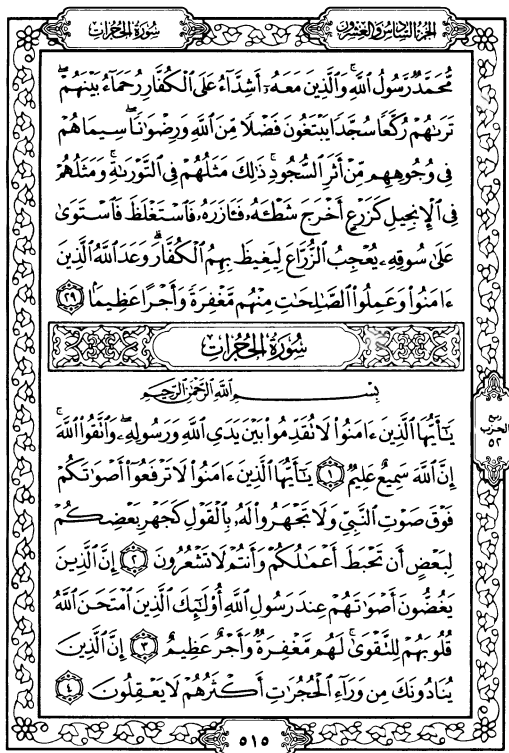 سُورَةُ الحُجُرَاتِ
الجُزءُ السَّادِسُ وَالعِشْرُونَ
مُّحَمَّدٌ رَّسُولُ ٱللَّهِ ۚ وَٱلَّذِينَ مَعَهُۥٓ أَشِدَّآءُ عَلَى ٱلْكُفَّارِ رُحَمَآءُ بَيْنَهُمْ ۖ
تَرَىٰهُمْ رُكَّعًا سُجَّدًا يَبْتَغُونَ فَضْلًا مِّنَ ٱللَّهِ وَرِضْوَٰنًا ۖ سِيمَاهُمْ
فِى وُجُوهِهِم مِّنْ أَثَرِ ٱلسُّجُودِ ۚ ذَٰلِكَ مَثَلُهُمْ فِى ٱلتَّوْرَىٰةِ ۚ وَمَثَلُهُمْ
فِى ٱلْإِنجِيلِ كَزَرْعٍ أَخْرَجَ شَطْـَٔهُۥ فَـَٔازَرَهُۥ فَٱسْتَغْلَظَ فَٱسْتَوَىٰ
عَلَىٰ سُوقِهِۦ يُعْجِبُ ٱلزُّرَّاعَ لِيَغِيظَ بِهِمُ ٱلْكُفَّارَ ۗ وَعَدَ ٱللَّهُ ٱلَّذِينَ
ءَامَنُوا۟ وَعَمِلُوا۟ ٱلصَّٰلِحَٰتِ مِنْهُم مَّغْفِرَةً وَأَجْرًا عَظِيمًۢا ٢٩
سُورَةُ الحُجُرَاتِ
بِسْمِ ٱللَّهِ ٱلرَّحْمَٰنِ ٱلرَّحِيمِ
يَٰٓأَيُّهَا ٱلَّذِينَ ءَامَنُوا۟ لَا تُقَدِّمُوا۟ بَيْنَ يَدَىِ ٱللَّهِ وَرَسُولِهِۦ ۖ وَٱتَّقُوا۟ ٱللَّهَ ۚ
إِنَّ ٱللَّهَ سَمِيعٌ عَلِيمٌ ١ يَٰٓأَيُّهَا ٱلَّذِينَ ءَامَنُوا۟ لَا تَرْفَعُوٓا۟ أَصْوَٰتَكُمْ
فَوْقَ صَوْتِ ٱلنَّبِىِّ وَلَا تَجْهَرُوا۟ لَهُۥ بِٱلْقَوْلِ كَجَهْرِ بَعْضِكُمْ
لِبَعْضٍ أَن تَحْبَطَ أَعْمَٰلُكُمْ وَأَنتُمْ لَا تَشْعُرُونَ ٢ إِنَّ ٱلَّذِينَ
يَغُضُّونَ أَصْوَٰتَهُمْ عِندَ رَسُولِ ٱللَّهِ أُو۟لَٰٓئِكَ ٱلَّذِينَ ٱمْتَحَنَ ٱللَّهُ
قُلُوبَهُمْ لِلتَّقْوَىٰ ۚ لَهُم مَّغْفِرَةٌ وَأَجْرٌ عَظِيمٌ ٣ إِنَّ ٱلَّذِينَ
يُنَادُونَكَ مِن وَرَآءِ ٱلْحُجُرَٰتِ أَكْثَرُهُمْ لَا يَعْقِلُونَ ٤
ربع
الحزب
٥٢
٥١٥